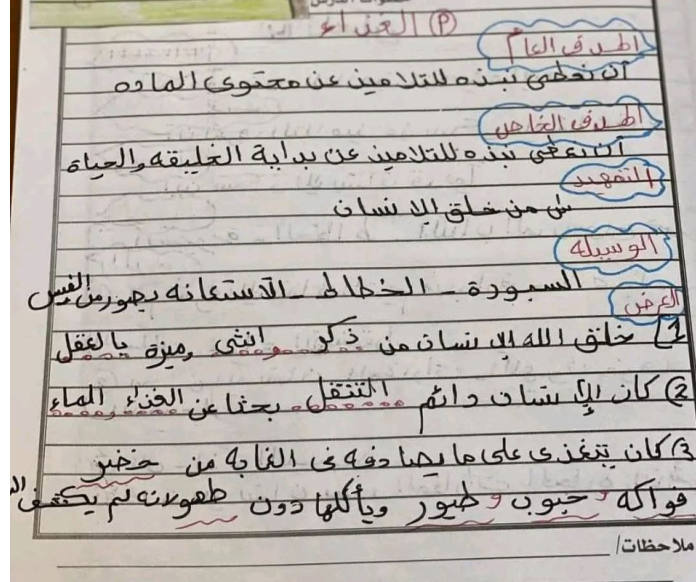 الغذاء
الهدف العام
أن نعطي نبذه للتلاميذ عن محتوى الماده
الهدف الخاص
أن نعطي نبذه للتلاميذ عن بداية الخليقه والحياة
التمهيد
س من خلق الانسان
الوسيله
السبورة - الخطاط - الاستعانه بصور من
العرض
1 خلق الله الإنسان من ذكر وانثى وميزة بالعقل
2 كان الإنسان دائم التنقل بحثا عن الغذاء والماء
3 كان يتغذى على ما يصادفه في الغابة من خضر
فواكه وحبوب وطيور ويأكلها دون طهو لانه لم يكتشف
ملاحظات/